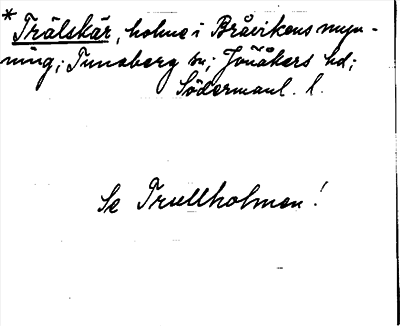 * Trälskär, holme i Bråvikens myn-
ning; Tunaberg sn; Jönåkers hd;
Södermanl. l.
Se Trullholmen!